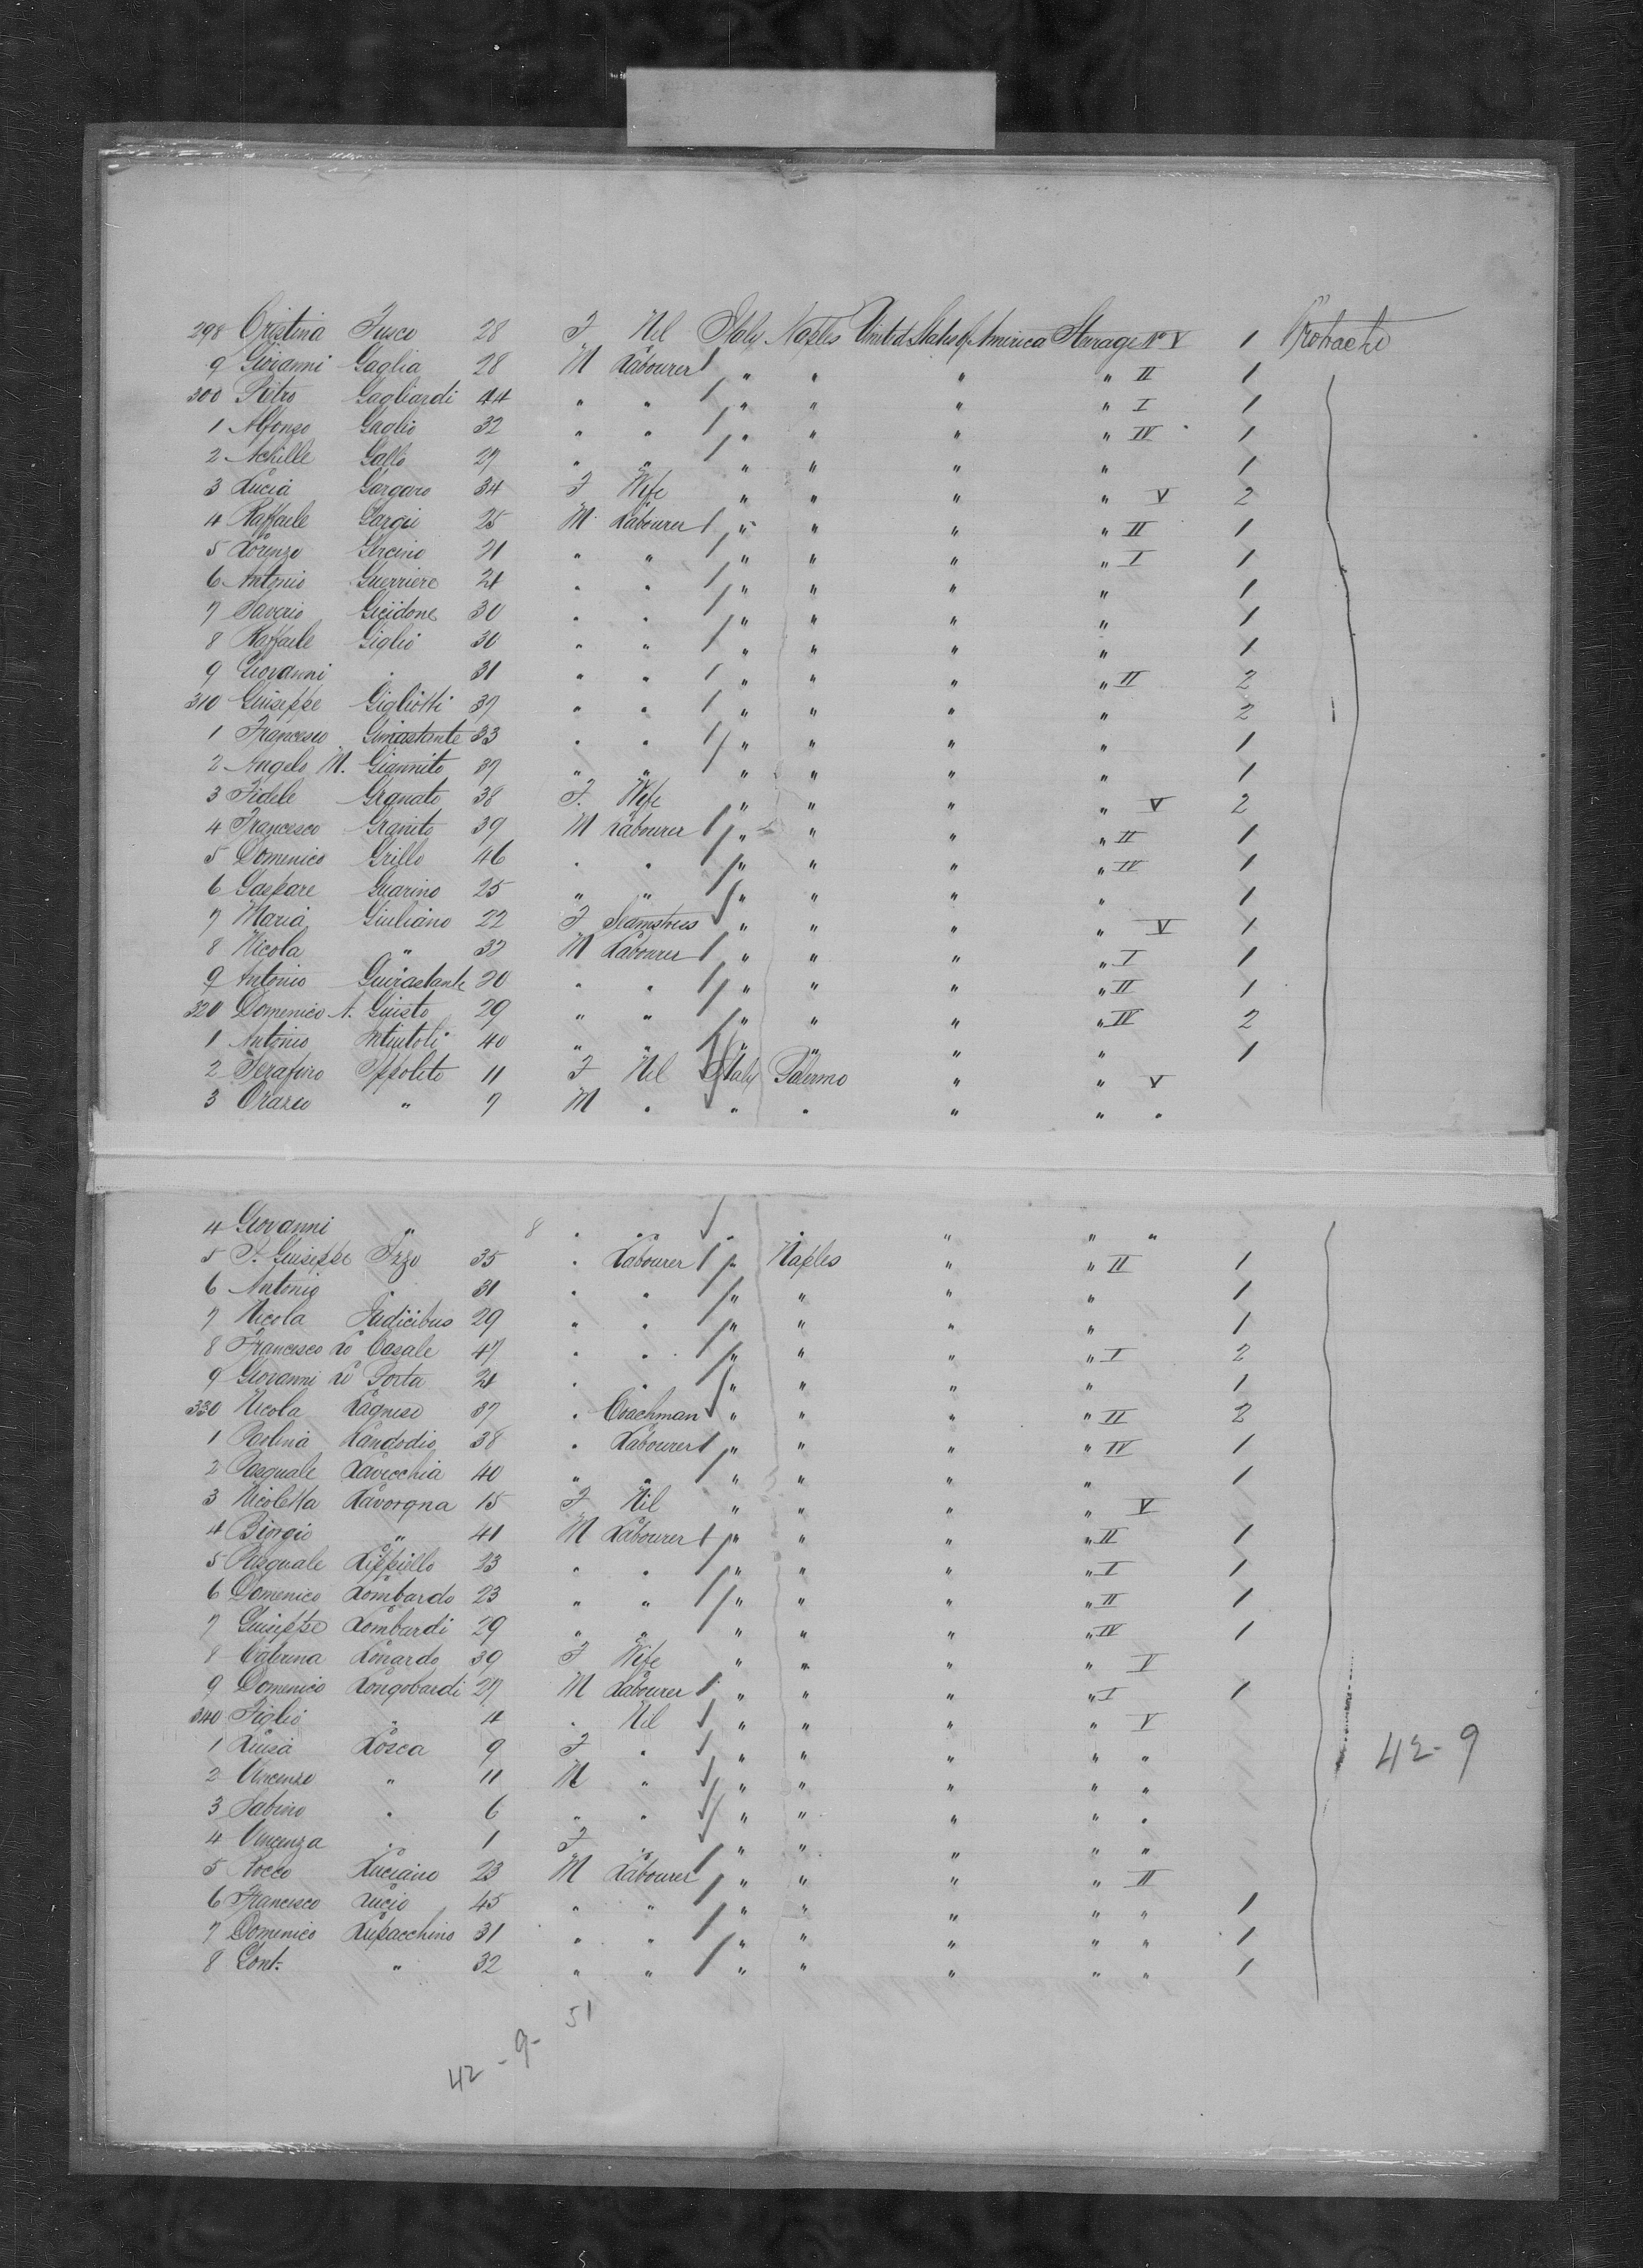 298 Cristina Fusco 28 F Nil Italy Naples United States of America Steerage No V 1 Protracted
9 Giovanni Gaglia 28 M Labourer " " " " II 1
300 Pietro Gagliardi 44 " " " " " " I 1
1 Alfonso Gaglio 32 " " " " " " IV 1
2 Achille Gallo 27 " " " " " " 1
3 Lucia Gargaro 34 F Wife " " " " V 2
4 Raffaele Gargii 25 M Labourer " " " " II 1
5 Lorenzo Gercino 21 " " " " " " I 1
6 Antonio Guerriere 21 " " " " " " 1
7 Saverio Gicidone 30 " " " " " " 1
8 Raffaele Giglio 30 " " " " " " 1
9 Giovanni " 31 " " " " " " II 2
310 Guiseppe Gigliotti 37 " " " " " " 2
1 Francesco Gimastante 33 " " " " " " 1
2 Angelo M. Giannito 37 " " " " " " 1
3 Fidele Granato 38 F. Wife " " " " V 2
4 Francesco Granito 39 M Labourer " " " " II 1
5 Domenico Grillo 46 " " " " " " IV 1
6 Gaspare Guarino 25 " " " " " " 1
7 Maria Giuliano 22 F Seamstress " " " " V 1
8 Nicola " 32 M Labourer " " " " I 1
9 Antonio Guirastante 20 " " " " " " II 1
320 Domenico A. Guisto 29 " " " " " " IV 2
1 Antonio Intintoli 40 " " " " " " 1
2 Serafino Ippolito 11 F Nil Italy Palermo " " V
3 Orazio " 7 M " " " " " "
4 Giovanni " 8 " " " " " " "
5 P. Guiseppe Izzo 35 " Labourer " Naples " " II 1
6 Antonio " 31 " " " " " " 1
7 Nicola Judicibus 29 " " " " " " 1
8 Francesco Lo Casale 47 " " " " " " I 2
9 Giovanni Lo Porta 21 " " " " " " 1
330 Nicola Lagnese 37 " Coachman " " " " II 2
1 Paolina Landodio 38 " Labourer " " " " IV 1
2 Pasquale Lavecchia 40 " " " " " " 1
3 Nicoletta Lavorgna 15 F Nil " " " " V
4 Biorgio " 41 M Labourer " " " " II 1
5 Pasquale Lippiello 23 " " " " " " I 1
6 Domenico Lombardo 23 " " " " " " II 1
7 Guiseppe Lombardi 29 " " " " " " IV 1
8 Caterina Lonardo 39 F Wife " " " " V
9 Domenico Longobardi 27 M Labourer " " " " I 1
340 Figlio " 4 " Nil " " " " V
1 Luisa Losca 9 F " " " " " "
2 Vincenzo " 11 M " " " " " "
3 Sabino " 6 " " " " " " "
4 Vincenza " 1 F " " " " " "
5 Rocco Luciano 23 M Labourer " " " " II
6 Francesco Lucio 45 " " " " " " " 1
7 Domenico Lupacchino 31 " " " " " " " 1
8 Cont. " 32 " " " " " " " 1
42-9
42-9-51